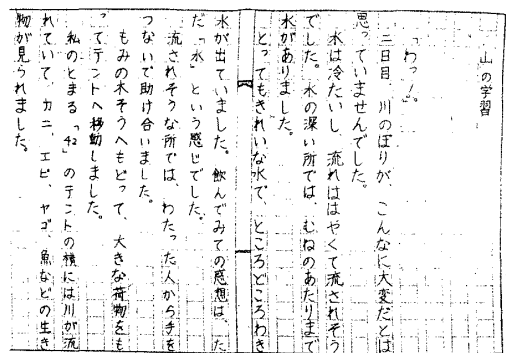 山の学習
「わっ！。」
二日目、川のぼりが、こんなに大変だとは
思っていませんでした。
水は冷たいし、流れははやくて流されそう
でした。水の深い所では、むねのあたりまで
水がありました。
とってもきれいな水で、ところどころわき
水が出ていました。飲んでみての感想は、た
だ「水」という感じでした。
流されそうな所では、わたった人から手を
つないで助け合いました。
もみの木そうへもどって、大きな荷物をも
ってテントへ移動しました。
私のとまる「42」のテントの横には川が流
れていて、カニ、エビ、ヤゴ、魚などの生き
物が見られました。